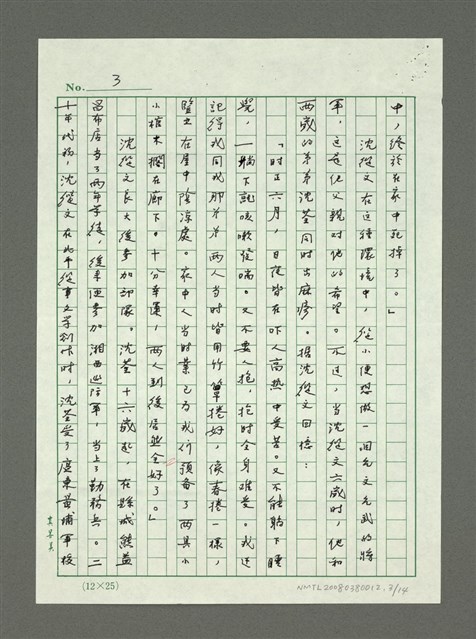 No. 3
中，終於在家中死掉了。」
沈從文在這種環境中，從小便想做一個允文允武的將
軍，這是他父親對他的希望。不過，當沈從文六歲時，他和
兩歲的弟弟沈荃同時出麻疹。据沈從文回憶：
「时正六月，日夜皆在吓人高热中受苦。又不能躺下睡
覺，一躺下就咳嗽發喘。又不要人抱，抱时全身难受。我还
記得我同我那弟弟两人当时皆用竹簟捲好，像春捲一樣，
豎立在屋中陰凉處。家中人当时業已为我们預备了两具小
小棺木擱在廊下。十分幸運，两人到後居然全好了。」
沈從文長大後参加部隊。沈荃十六歲起，在縣城熊益
昌布店当了两年学徒，後来便参加湘西巡防軍，当上了勤務兵。二
十年代初，沈從文在北平從事文学創作时，沈荃受了廣東黃埔軍校
(12×25)
NMTL20080380012, 3/14